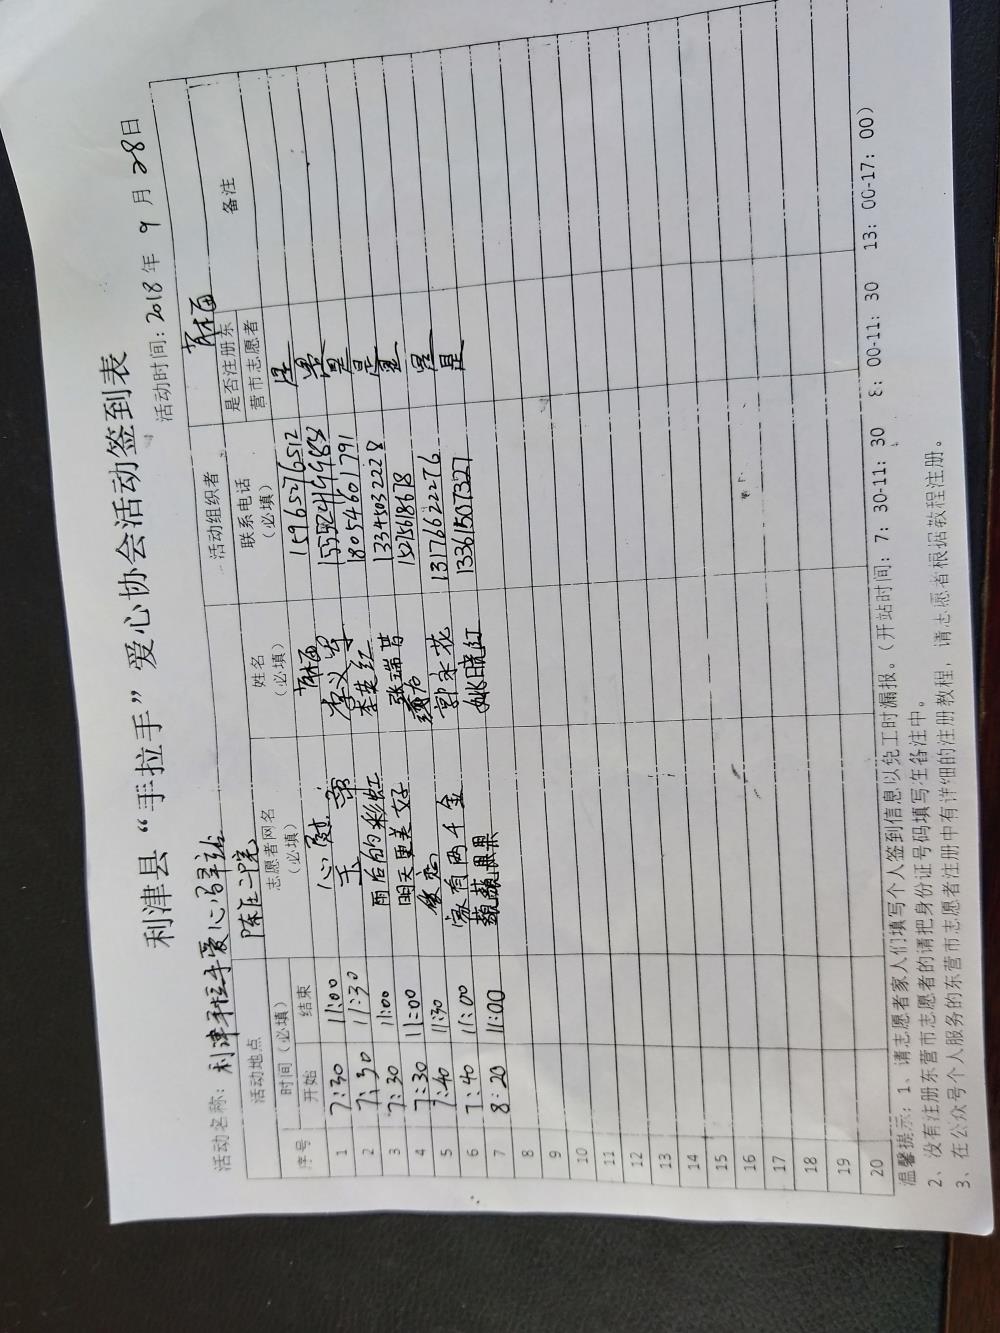 利津县“手拉手”爱心协会活动签到表
活动名称：利津手拉手爱心驿站 活动时间：2018年9月28日
活动地点 陈庄二院 活动组织者
序号 时间（必填） 志愿者网名（必填） 姓名（必填） 联系电话（必填） 是否注册东营市志愿者 备注
开始 结束
1 7:30 11:00 心慰 15965276512 是
2 7:30 11:30 李义军 是
3 7:30 11:00 雨后的彩虹 李英红 18054601791 是
4 7:30 11:00 明天更美好 张瑞昔 13345032228 是
5 7:40 11:30 1525618678 是
6 7:40 11:00 家有两千金 郭永花 13176622276 是
7 8:20 11:00 巍巍果果 姚晓红 13361507327 是
8
9
10
11
12
13
14
15
16
17
18
19
20
温馨提示：1、请志愿者家人们填写个人签到信息以免工时漏报。（开站时间：7：30-11：30 8：00-11：30 13：00-17：00）
2、没有注册东营市志愿者的请把身份证号码填写在备注中。
3、在公众号个人服务的东营市志愿者注册中有详细的注册教程，请志愿者根据教程注册。